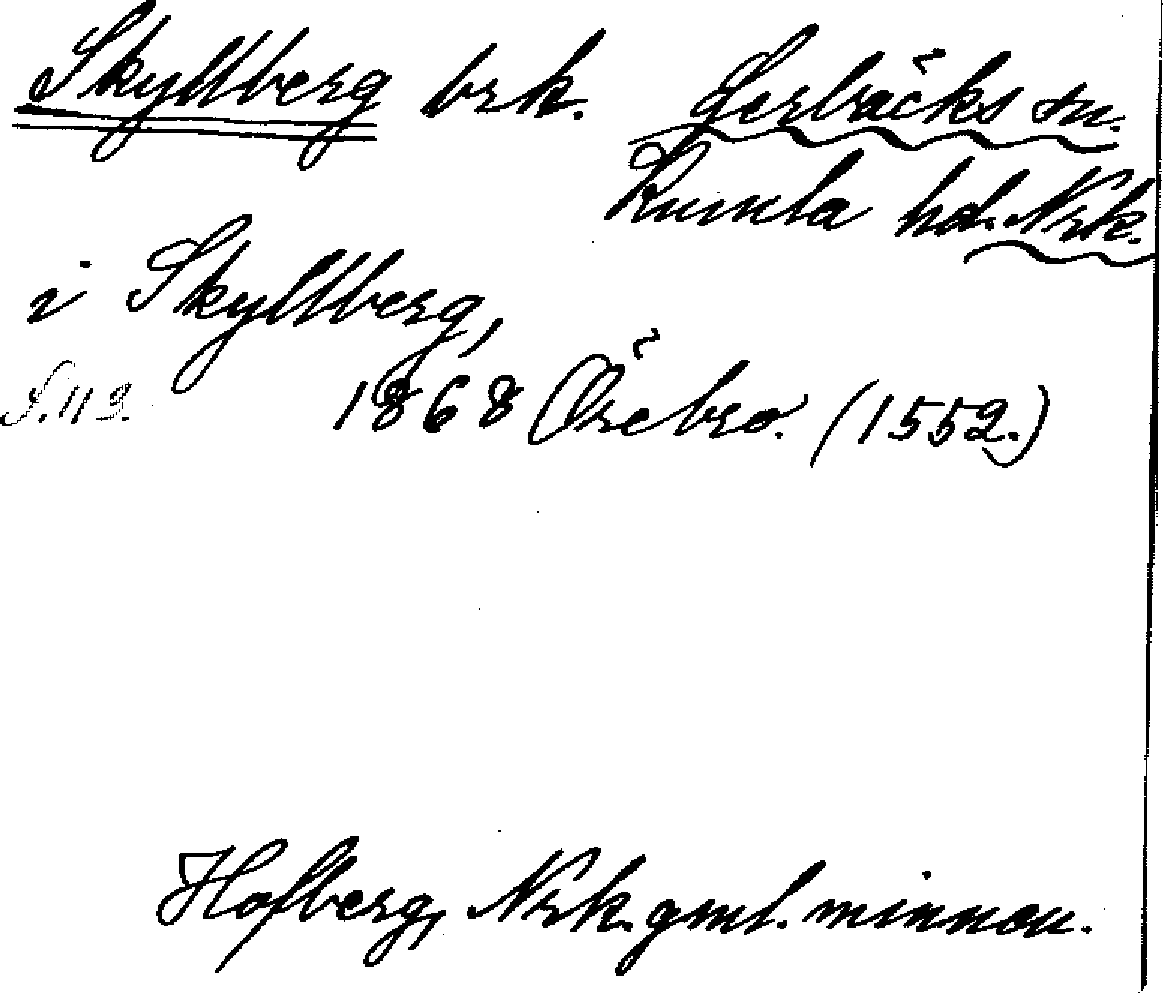 Skyllberg brk. Lerbäcks sn.
Kumla hd. Nrk.
i Skyllberg,
S. 119. 1868 Örebro. (1552.)
Hofberg, Nrk. gml. minnen.